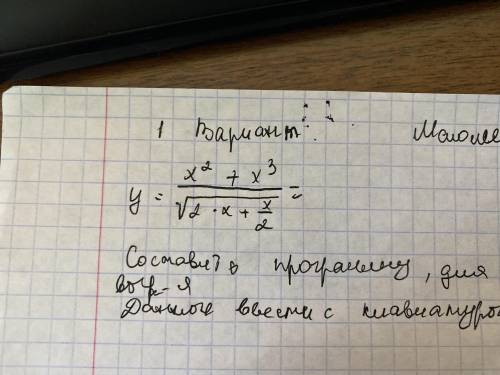 1 Вариант:
y = (x² + x³) / √(2 · x + x/2) =
Составить программу, для
выр-я
Данные ввести с клавиатуры